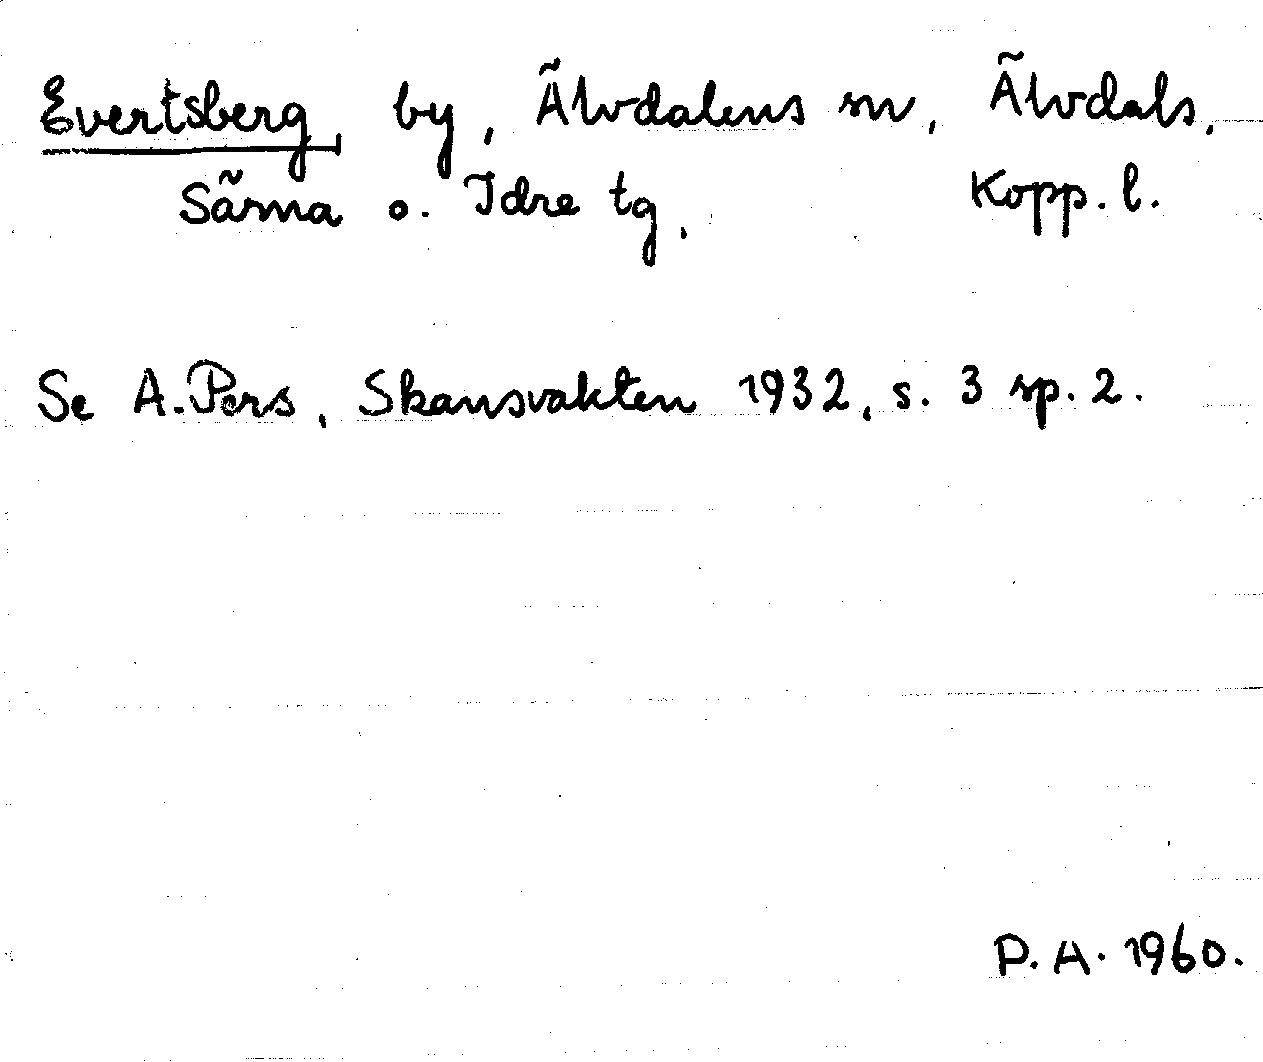 Evertsberg, by, Älvdalens sn, Älvdals,
Särna o. Idre tg, Kopp. l.
Se A. Pers, Skansvakten 1932, s. 3 sp. 2.
P. A. 1960.